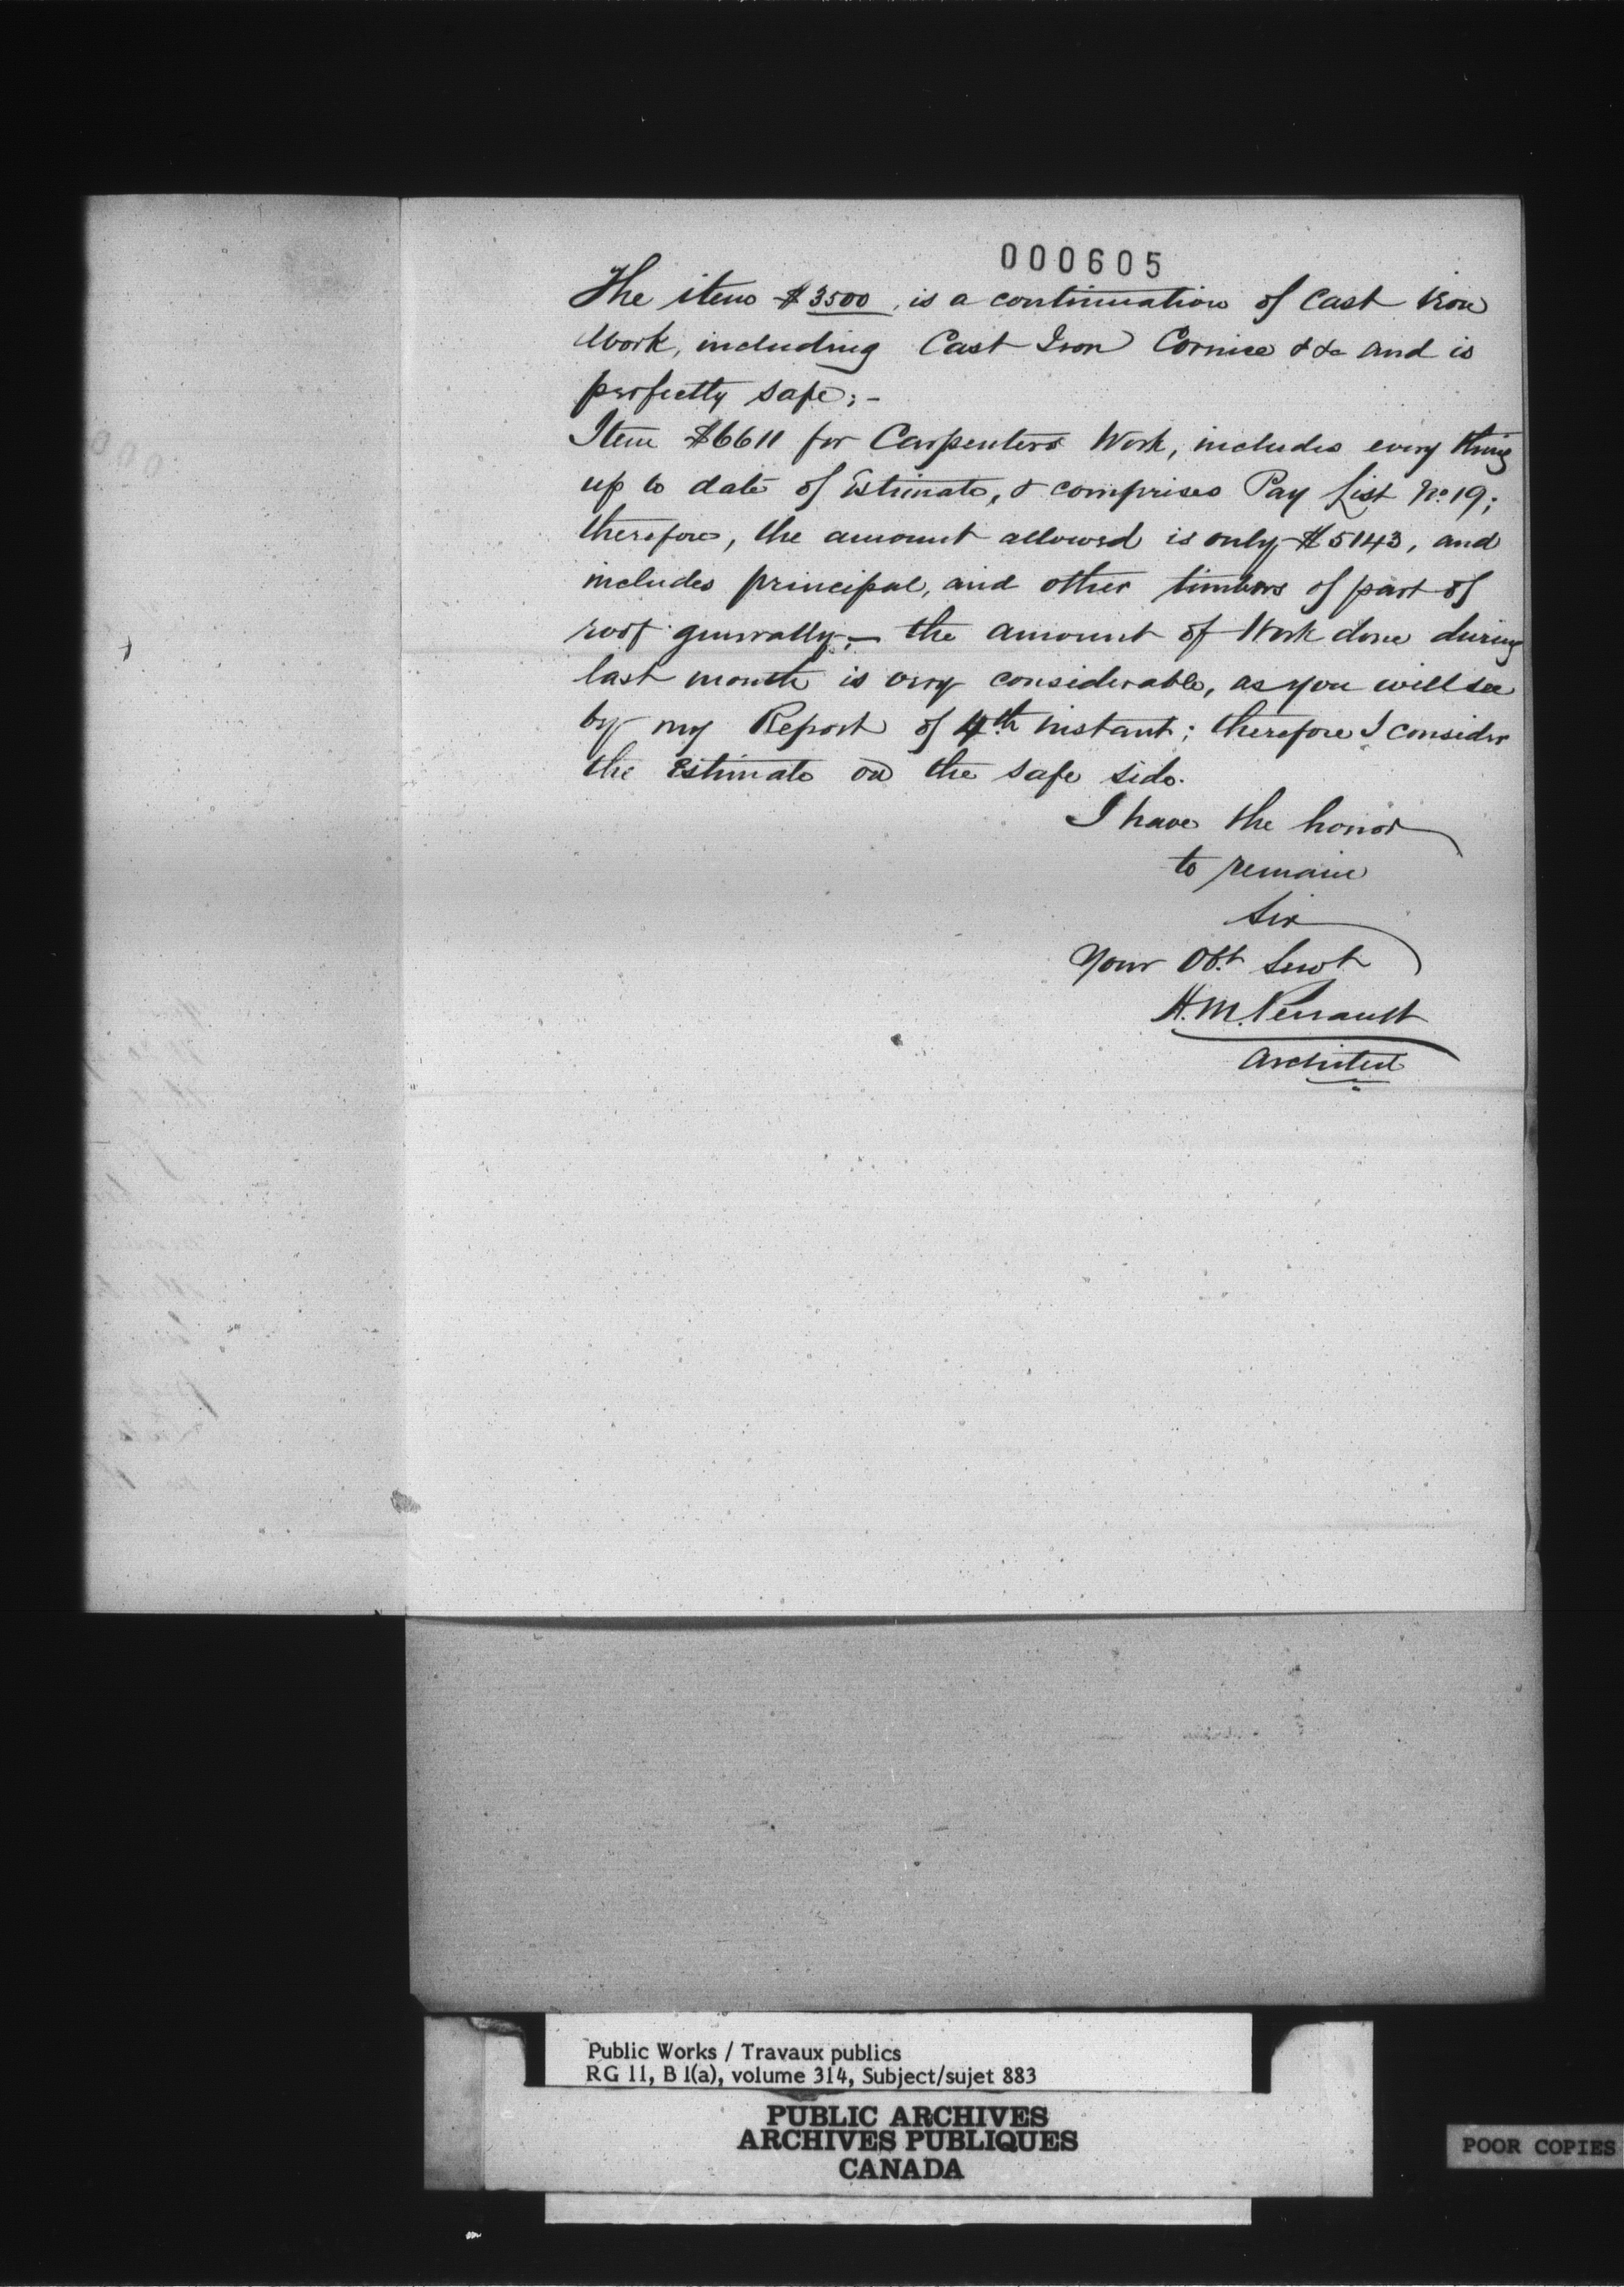 000605
The item $3500, is a continuation of Cast Iron
Work, including Cast Iron Cornice &&c and is
perfectly safe; -
Item $6611 for Carpenters Work, includes every thing
up to date of Estimate, & comprises Pay List No. 19;
therefore, the amount allowed is only $5143, and
includes principal, and other timbers of part of
roof generally; — the amount of Work done during
last month is very considerable, as you will see
by my Report of 4th instant; therefore I consider
the Estimate on the safe side.
I have the honor
to remain
Sir
Your Obt. Servt
H. M. Perrault
Architect
Public Works / Travaux publics
RG 11, B 1(a), volume 314, Subject/sujet 883
PUBLIC ARCHIVES
ARCHIVES PUBLIQUES
CANADA
POOR COPIES